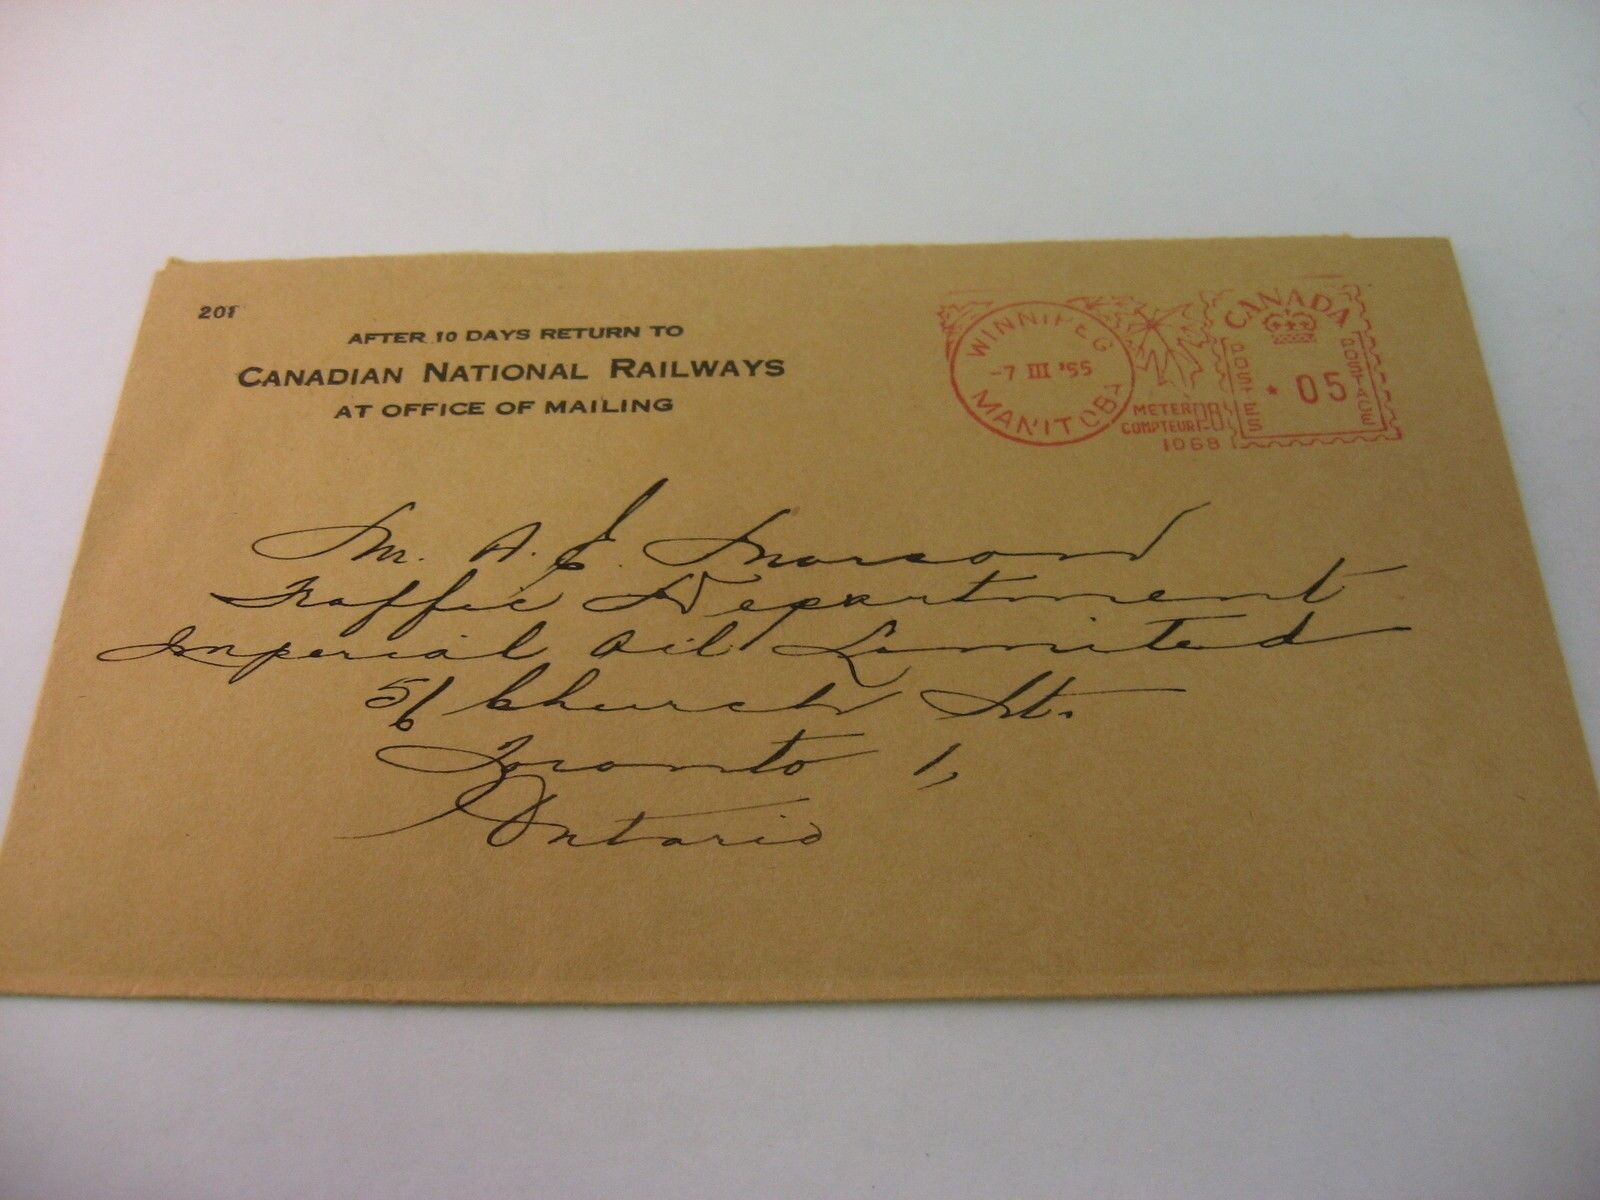 201
AFTER 10 DAYS RETURN TO
CANADIAN NATIONAL RAILWAYS
AT OFFICE OF MAILING
WINNIPEG
-7 III '55
MANITOBA
METER
COMPTEUR
1068
CANADA
POSTES
POSTAGE
* 05
Mr. A. E.
Traffic Department
Imperial Oil Limited
56 Church St.
Toronto 1,
Ontario